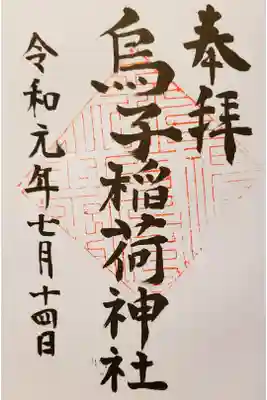 奉拝
烏子稲荷神社
令和元年七月十四日